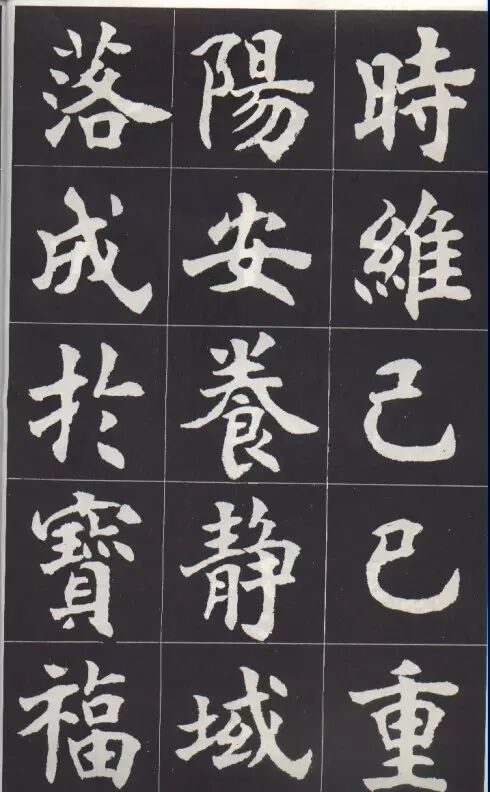 時維己巳重
陽安養静域
落成於寶福